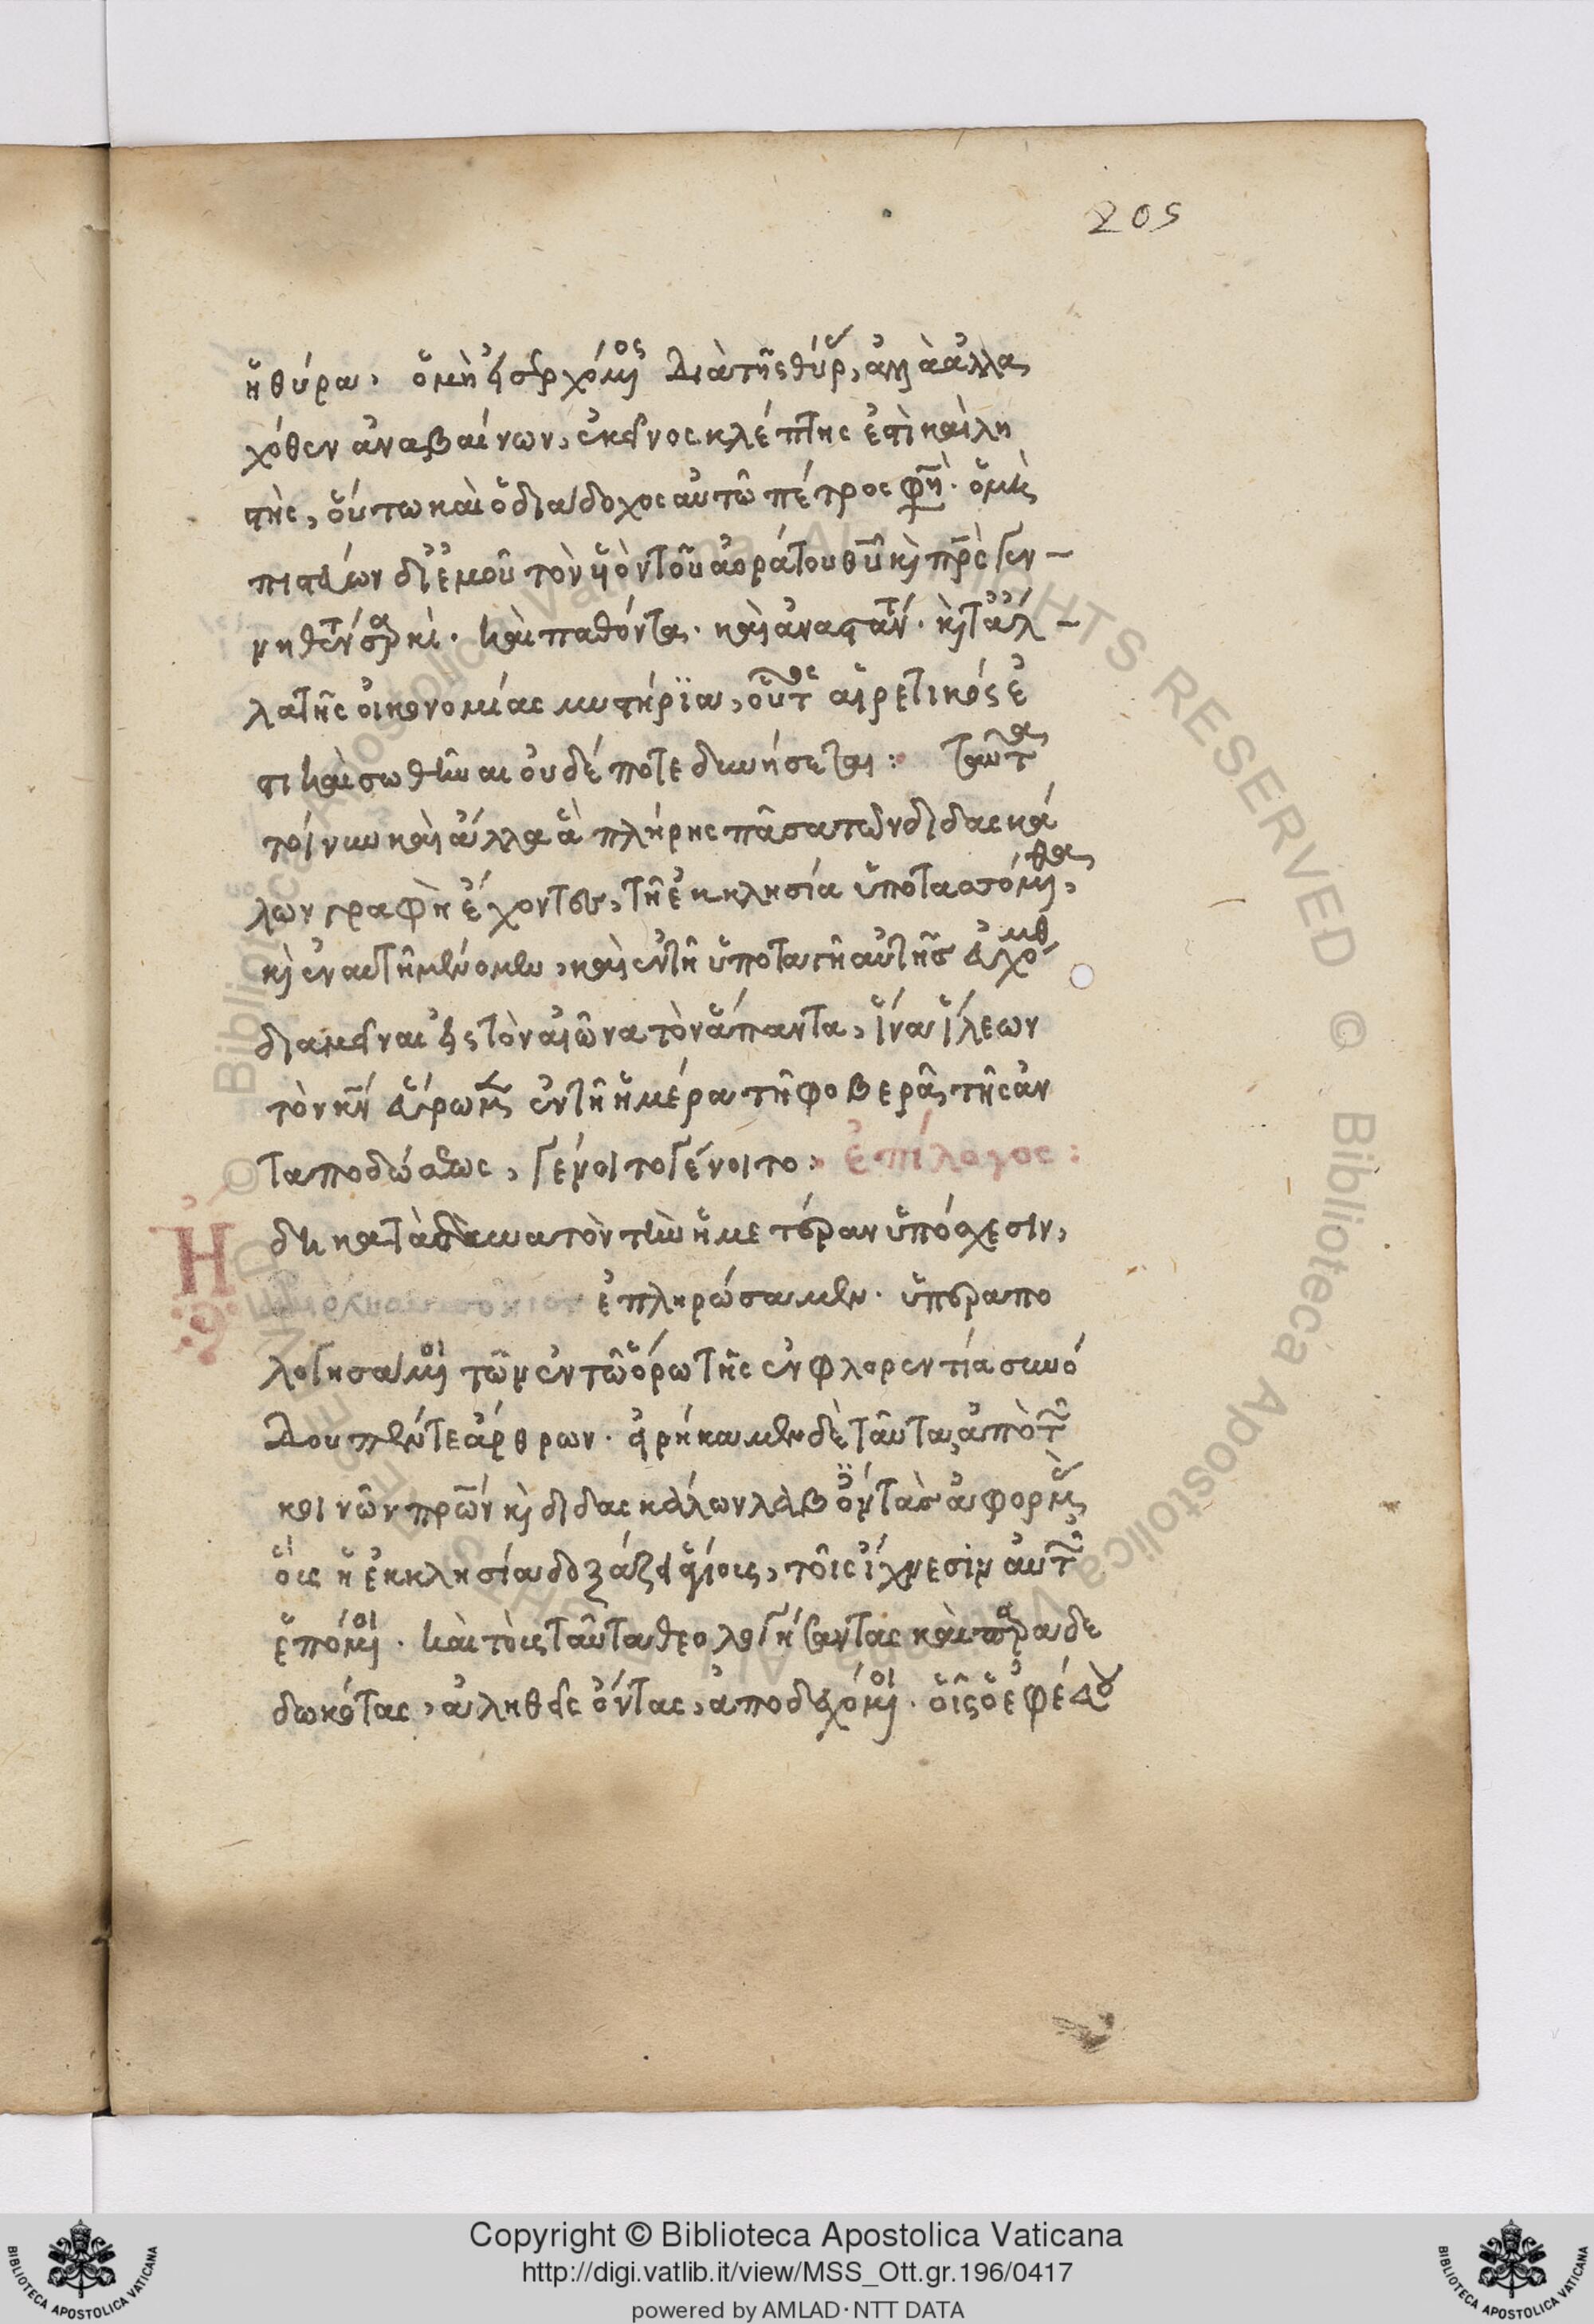 205
ἡ θύρα, ὁ μὴ εἰσερχόμενος διὰ τῆς θύρας, ἀλλὰ ἀλλα
χόθεν ἀναβαίνων, ἐκεῖνος κλέπτης ἐστὶ καὶ λη
στής, οὕτω καὶ ὁ διάδοχος αὐτοῦ πέτρος φησὶ· ὁ μὴ
πιστεύων δι' ἐμοῦ τὸν υἱὸν τοῦ ἀοράτου θῦ καὶ πρς γεν-
νηθέντα σαρκί· καὶ παθόντα· καὶ ἀναστάντα· καὶ τὰ ἄλ-
λα τῆς οἰκονομίας μυστήρϊα, οὗτος αἱρετικός ἐ
στι καὶ σωθῆναι οὐδέποτε δυνήσεται: ταῦτα
τοίνυν καὶ ἄλλα ἃ πλήρης πᾶσα τῶν διδασκά
λων γραφὴ ἔχοντες, τῇ ἐκκλησία ὑποτασσόμεθα,
καὶ ἐν αὐτῇ μένομεν, καὶ ἐν τῇ ὑποταγῇ αὐτῆς εὐχόμεθα
διαμεῖναι εἰς τὸν αἰῶνα τὸν ἅπαντα, ἵνα ἵλεων
τὸν κν εὕρωμεν ἐν τῇ ἡμέρα τῇ φοβερᾶ τῆς ἀν
ταποδώσεως, γένοιτο γένοιτο· ἐπίλογος:
Ἤδη κατὰ δυνατὸν τὴν ἡμετέραν ὑπόσχεσιν,
ἐπληρώσαμεν· ὑπεραπο
λογησάμενοι τῶν ἐν τῷ ὅρω τῆς ἐν φλορεντία συνό
δου πέντε ἄρθρων· εἰρήκαμεν δὲ ταῦτα, ἀπὸ τῶν
κοινῶν πρων καὶ διδασκάλων λαβόντες ἀφορμὰς
οἷς ἡ ἐκκλησία δοξάζει ἁγίοις, τοῖς ἴχνεσιν αὐτῶν
ἑπόμενοι· καὶ τοὺς ταῦτα θεολογήσαντας καὶ παραδε
δωκότας, ἀληθεῖς ὄντας, ἀποδεχόμενοι· οἷς ὁ ἐφέσου
Copyright © Biblioteca Apostolica Vaticana
http://digi.vatlib.it/view/MSS_Ott.gr.196/0417
powered by AMLAD·NTT DATA